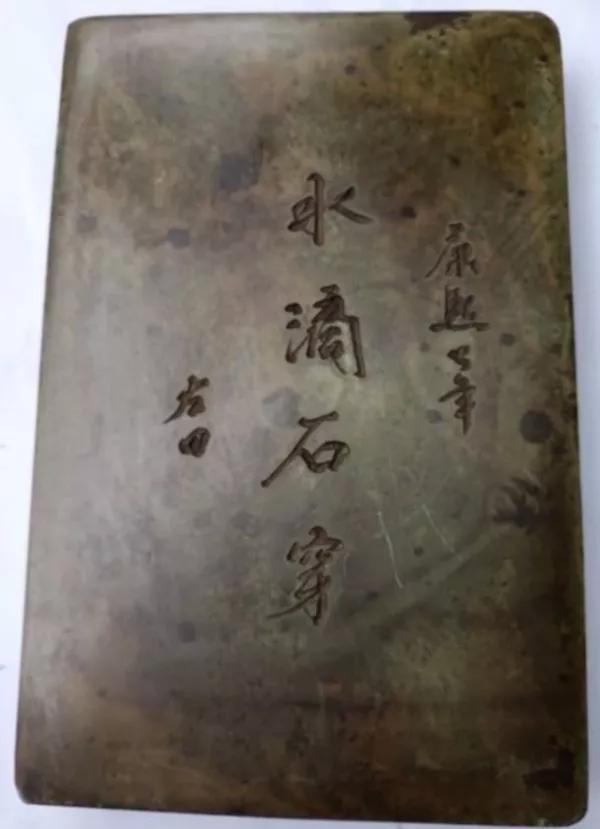 康熙七年
水滴石穿
右田